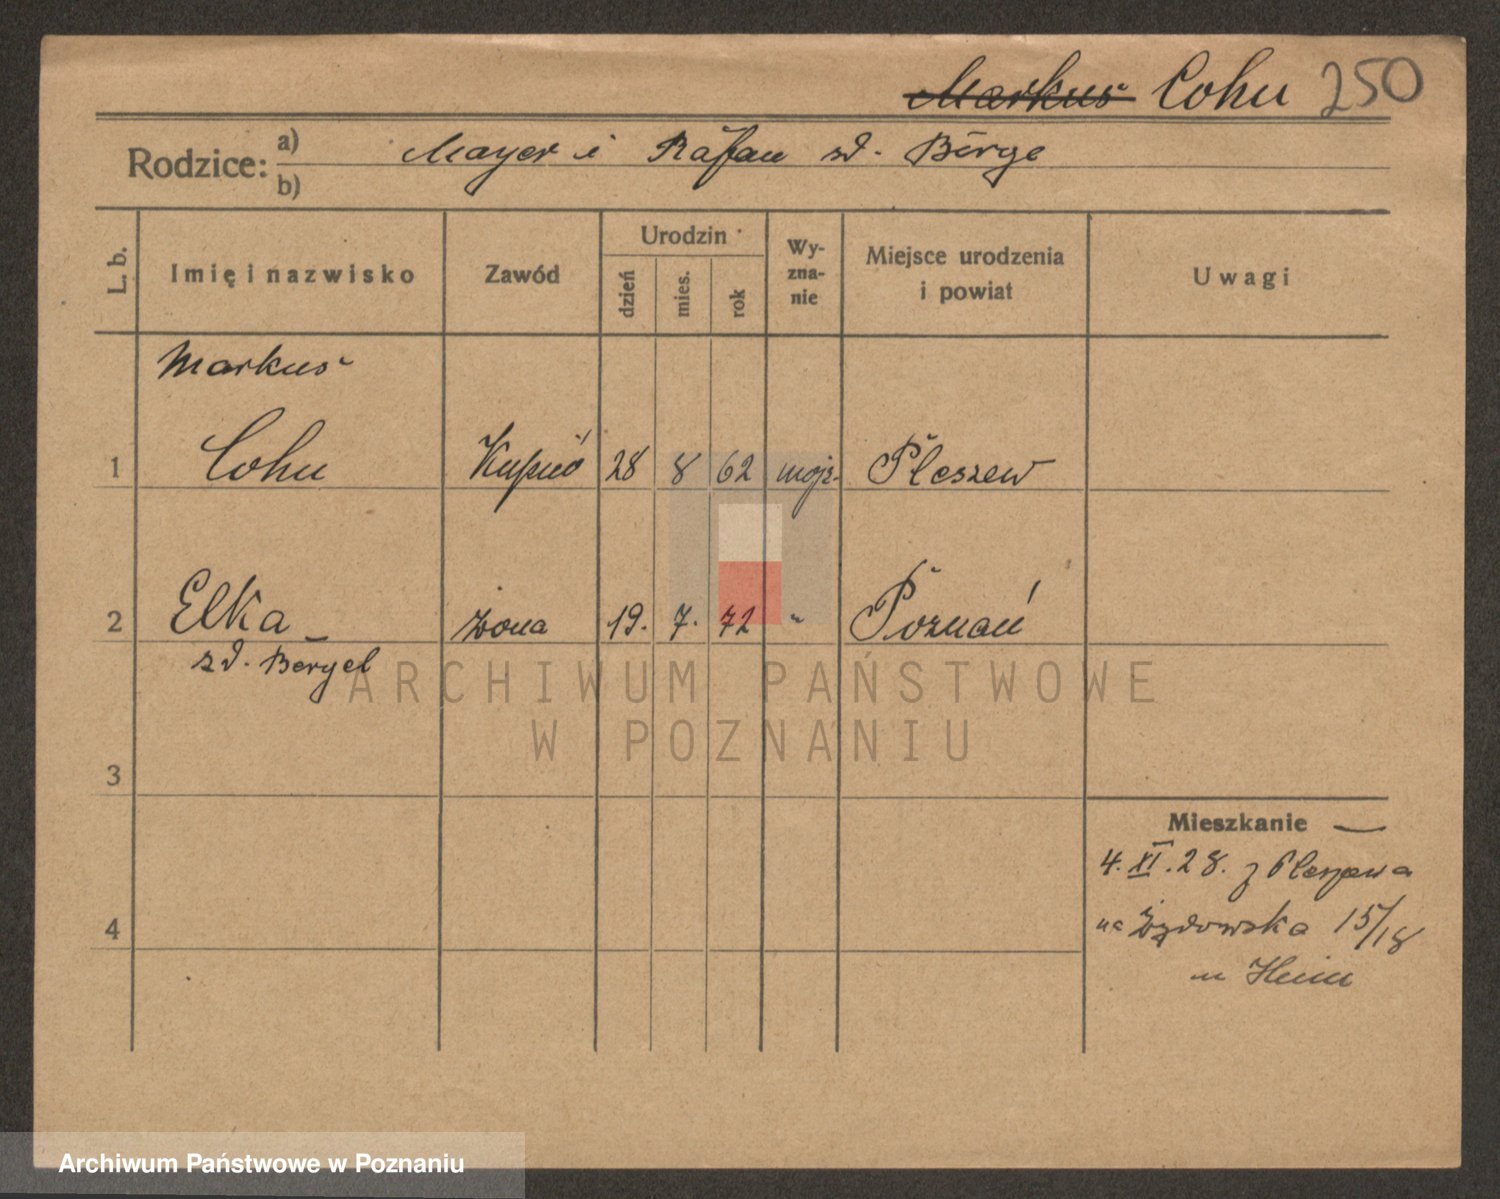 Markus Cohn 250
Rodzice: a) Mayer i Räfan zd. Berge
b)
L. b. Imię i nazwisko Zawód Urodzin dzień mies. rok Wy-zna-nie Miejsce urodzenia i powiat Uwagi
Markus
1 Cohn Kupiec 28 8 62 mojż. Pleszew
2 Elka żona 19. 7. 72 " Poznań
zd. Bergel
3
Mieszkanie
4. XI. 28. z Pleszewa
4 na Żydowska 15/18
u Heim
ARCHIWUM PAŃSTWOWE
W POZNANIU
Archiwum Państwowe w Poznaniu